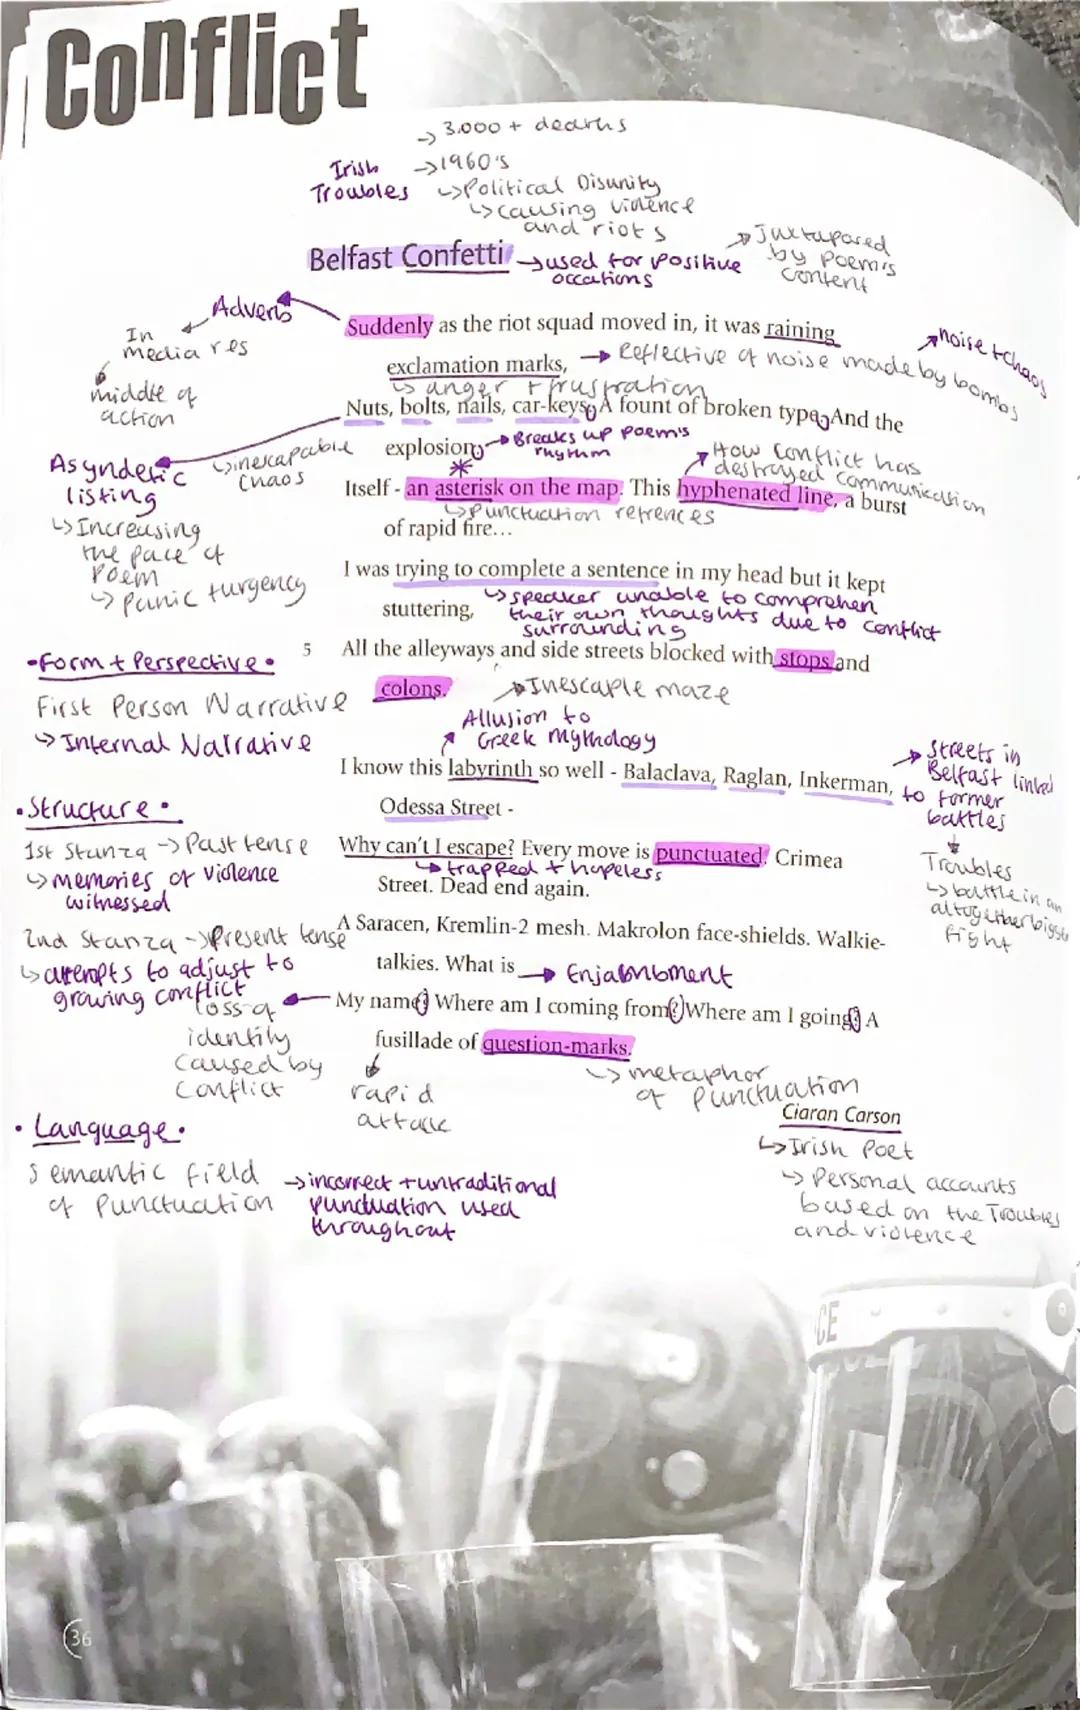 Conflict
→ 3.000 + deaths
Irish Troubles
→ 1960's
↳ Political Disunity
↳ causing violence and riots
Belfast Confetti
→ used for positive occations
→ Juxtaposed by poem's content
Adverb
In media res
middle of action
Suddenly as the riot squad moved in, it was raining
exclamation marks,
→ Reflective of noise made by bombs
noise + chaos
↳ anger + frustration
Nuts, bolts, nails, car-keys. A fount of broken type. And the
explosion
→ Breaks up poem's rhythm
Asyndetic listing
↳ inescapable chaos
↳ Increasing the pace of poem
↳ panic + urgency
How conflict has destroyed communication
*
Itself - an asterisk on the map. This hyphenated line, a burst
of rapid fire...
↳ Punctuation refrences
I was trying to complete a sentence in my head but it kept
stuttering,
↳ speaker unable to comprehen
their own thoughts due to conflict
surrounding
5 All the alleyways and side streets blocked with stops and
colons.
→ Inescaple maze
• Form + Perspective •
First Person Narrative
↳ Internal Narrative
Allusion to
Greek Mythology
I know this labyrinth so well - Balaclava, Raglan, Inkerman,
Odessa Street -
→ Streets in
Belfast linked
to former
battles
Troubles
↳ battle in an
altogether bigger
fight
Why can't I escape? Every move is punctuated. Crimea
↳ trapped + hopeless
Street. Dead end again.
• Structure •
1st Stanza → Past tense
↳ memories of violence
witnessed
2nd Stanza → Present tense
↳ attempts to adjust to
growing conflict
A Saracen, Kremlin-2 mesh. Makrolon face-shields. Walkie-
talkies. What is
→ Enjabmbment
My name? Where am I coming from? Where am I going? A
fusillade of question-marks.
loss of
identity
caused by
conflict
rapid
attack
↳ metaphor
of punctuation
Ciaran Carson
↳ Irish Poet
↳ Personal accounts
based on the Troubles
and violence
• Language •
Semantic field
of Punctuation
→ incorrect + untraditional
punctuation used
throughout
CE
36